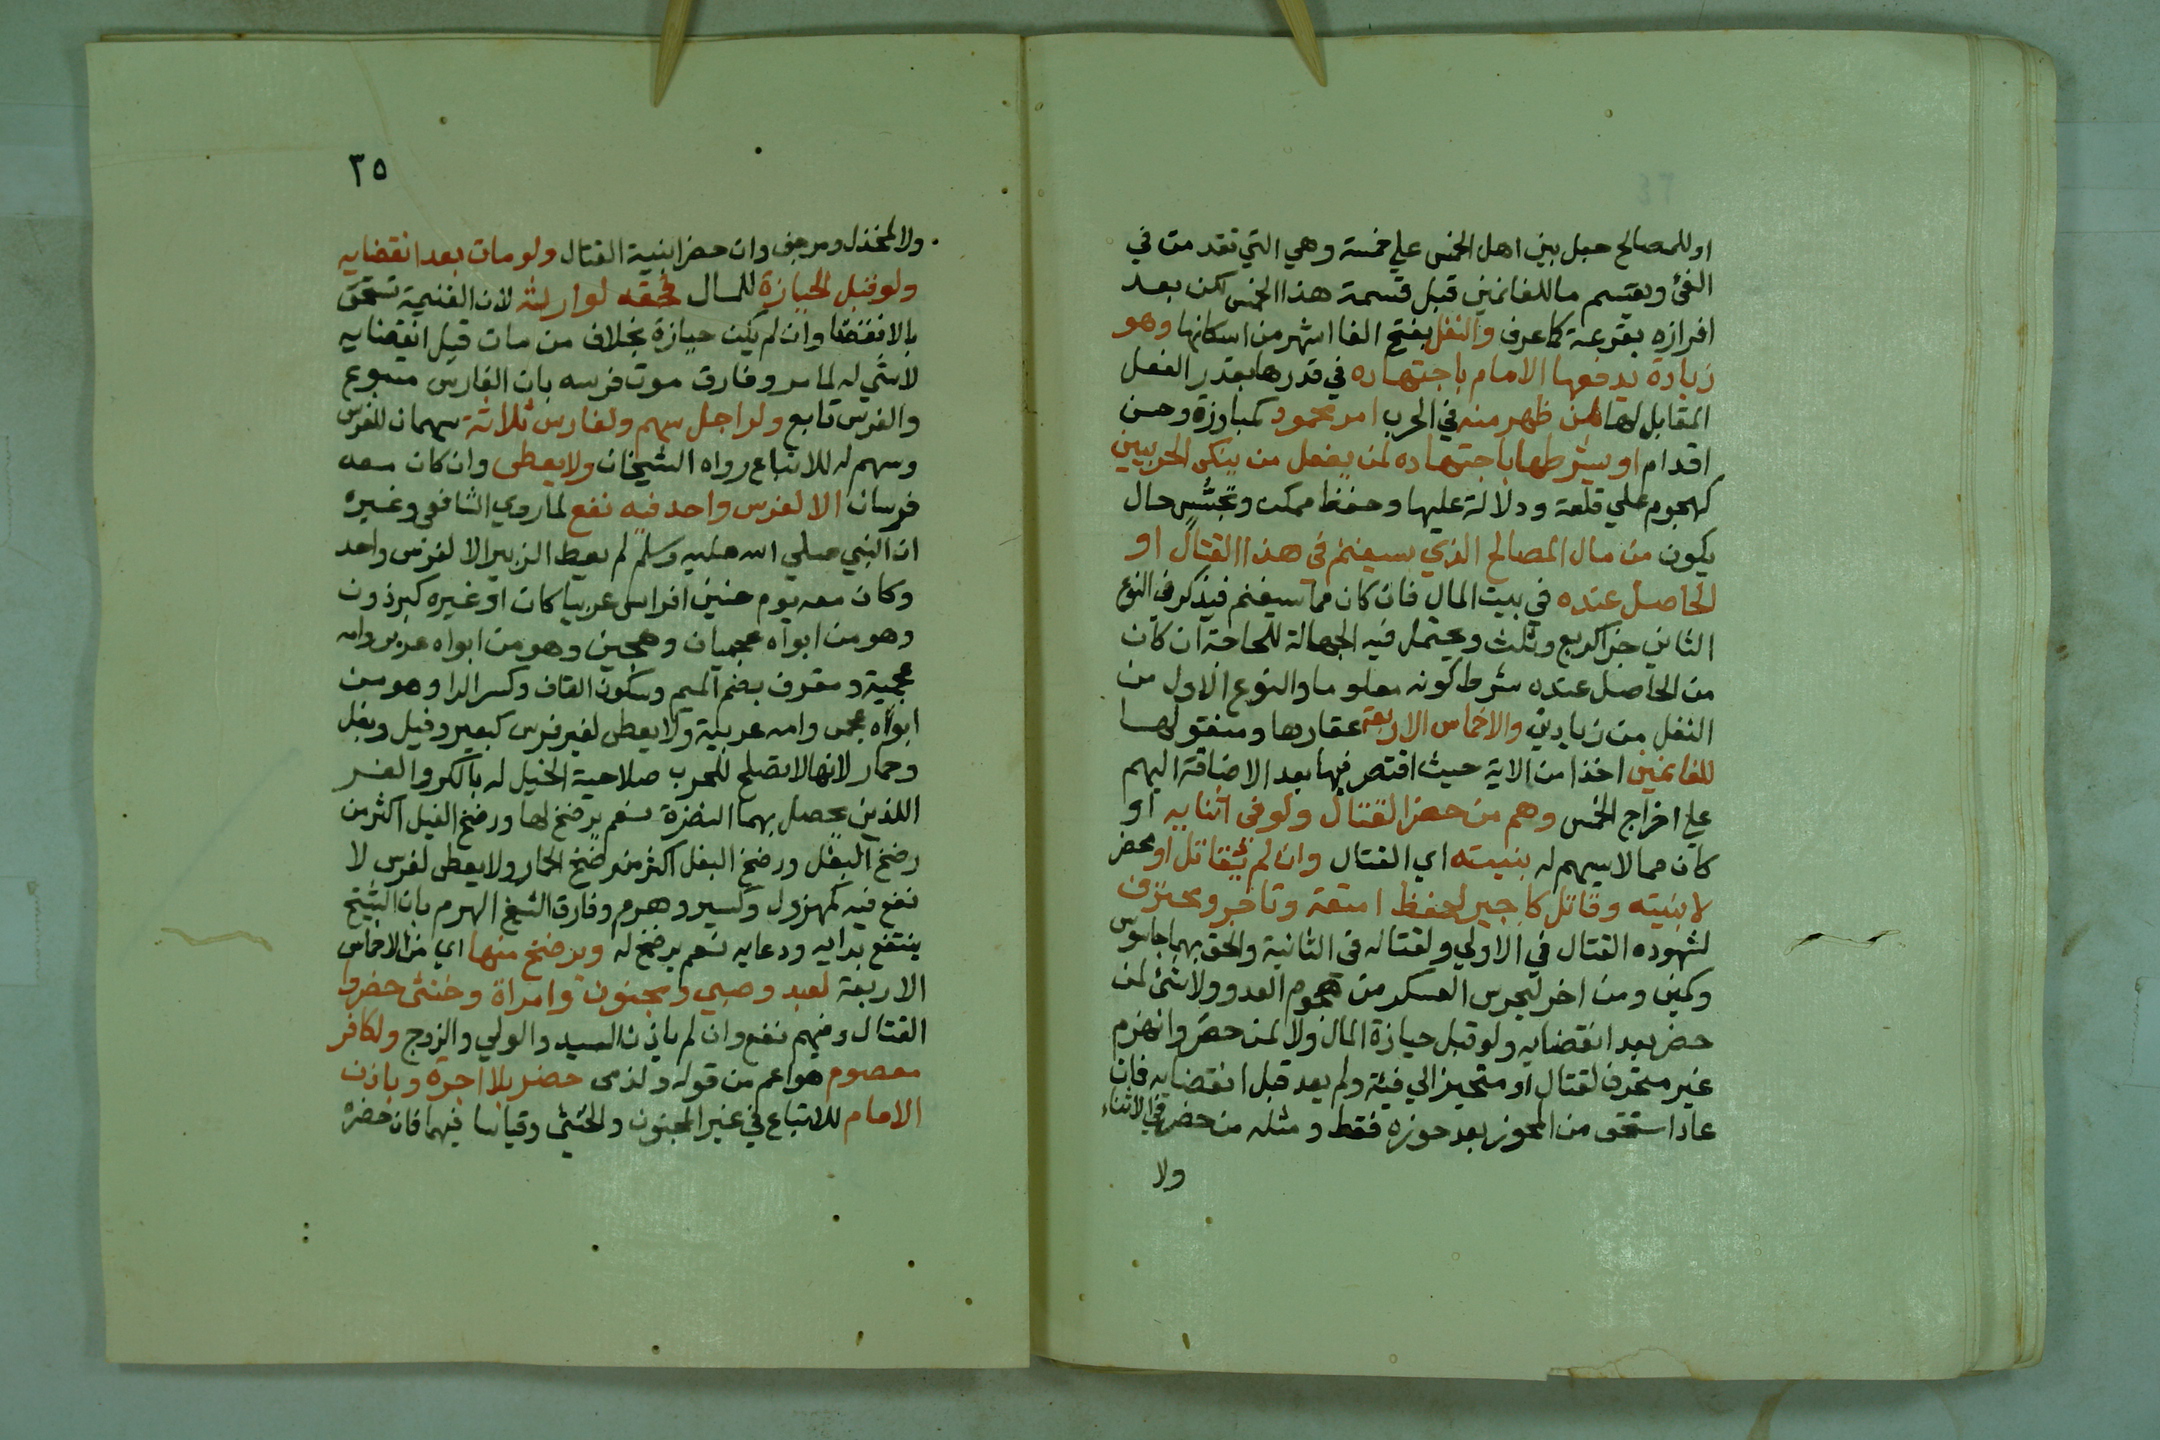 او للمصالح جعل بين اهل الخمس علي خمسة وهي التي تقدمت في
الفئ ويقسم ما للغانمين قبل قسمة هذا الخمس لكن بعد
افرازه بقرعة كما عرف والنفل بفتح الفا اشهر من اسكانها وهو
زيادة يدفعها الامام باجتهاده في قدرها بقدر الفعل
المقابل لها لمن ظهر منه في الحرب امر محمود كمبارزة وحسن
اقدام او يشرطها باجتهاده لمن يفعل من ينكى الحربيين
كهجوم علي قلعة ودلالة عليها وحفظ ممكن وتجسُّس حال
يكون من مال المصالح الذي سيغنم في هذا القتال او
الحاصل عنده في بيت المال فان كان مما سيغنم فيذكر في النوع
الثاني جزا كربع وثلث ويحتمل فيه الجهالة للحاجة ان كان
من الحاصل عنده شرط كونه معلوما والنوع الاول من
النفل من زيادتي والاخماس الاربعة عقارها ومنقولها
للغانمين اخذا من الاية حيث اقتصر فيها بعد الاضافة اليهم
علي اخراج الخمس وهم من حضر القتال ولو في اثنايه او
كان ممالا يسهم له بنيته اي القتال وان لم يقاتل او حضر
لا بنيته وقاتل كاجير لحفظ امتعة وتاجر ومحترف
لشهوده القتال في الاولي ولقتاله في الثانية والحق بهما جاسوس
وكمين ومن اخر ليحرس العسكر من هجوم العدو ولا شئ لمن
حضر بعد انقضايه ولو قبل حيازة المال ولا لمن حضر وانهزم
غير متحرف لقتال او متحيز الي فئة ولم يعد قبل انقضايه فان
عاد استحق من المحوز بعد حوزه فقط ومثله من حضر في الاثناء
ولا
٣٥
ولا لمخذل ومرجف وان حضر ابنية القتال ولو مات بعد انقضايه
ولو قبل الحيازة للمال فحقه لوارثه لان الغنيمة تستحق
بالانقضا وان لم يكن حيازة بخلاف من مات قبل انقضايه
لا شي له لما مر وفارق موت فرسه بان الفارس متبوع
والفرس تابع ولراجل سهم ولفارس ثلاثة سهمان للفرس
وسهم له للاتباع رواه الشيخان ولا يعطى وان كان معه
فرسان الا لفرس واحد فيه نفع لما روي الشافعي وغيره
ان النبي صلي الله عليه وسلم لم يعط الزبير الا لفرس واحد
وكان معه يوم حنين افراس عربيا كان او غيره كبرذون
وهو من ابواه عجميان وهجين وهو من ابواه عربي وامه
عجمية ومقرف بضم الميم وسكون القاف وكسر الرا وهو من
ابواه عجمى وامه عربية ولا يعطى لغير فرس كبعير وفيل وبغل
وحمار لانها لا تصلح للحرب صلاحية الخيل له بالكر والفر
اللذين يحصل بهما النضرة نعم يرضخ لها ورضخ الفيل اكثر من
رضخ البغل ورضخ البغل اكثر من رضخ الحمار ولا يعطى لفرس لا
نفع فيه كمهزول وكسير وهرم وفارق الشيخ الهرم بان الشيخ
ينتفع برايه ودعايه نعم يرضخ له ويرضخ منها اي من الاخماس
الاربعة لعبد وصبي ومجنون وامراة وخنثى حضروا
القتال وفيهم نفع وان لم ياذن السيد والولي والزوج ولكافر
معصوم هو اعم من قوله ولذمى حضر بلا اجرة وباذن
الامام للاتباع في غير المجنون والخنثى وقياسا فيهما فان حضره